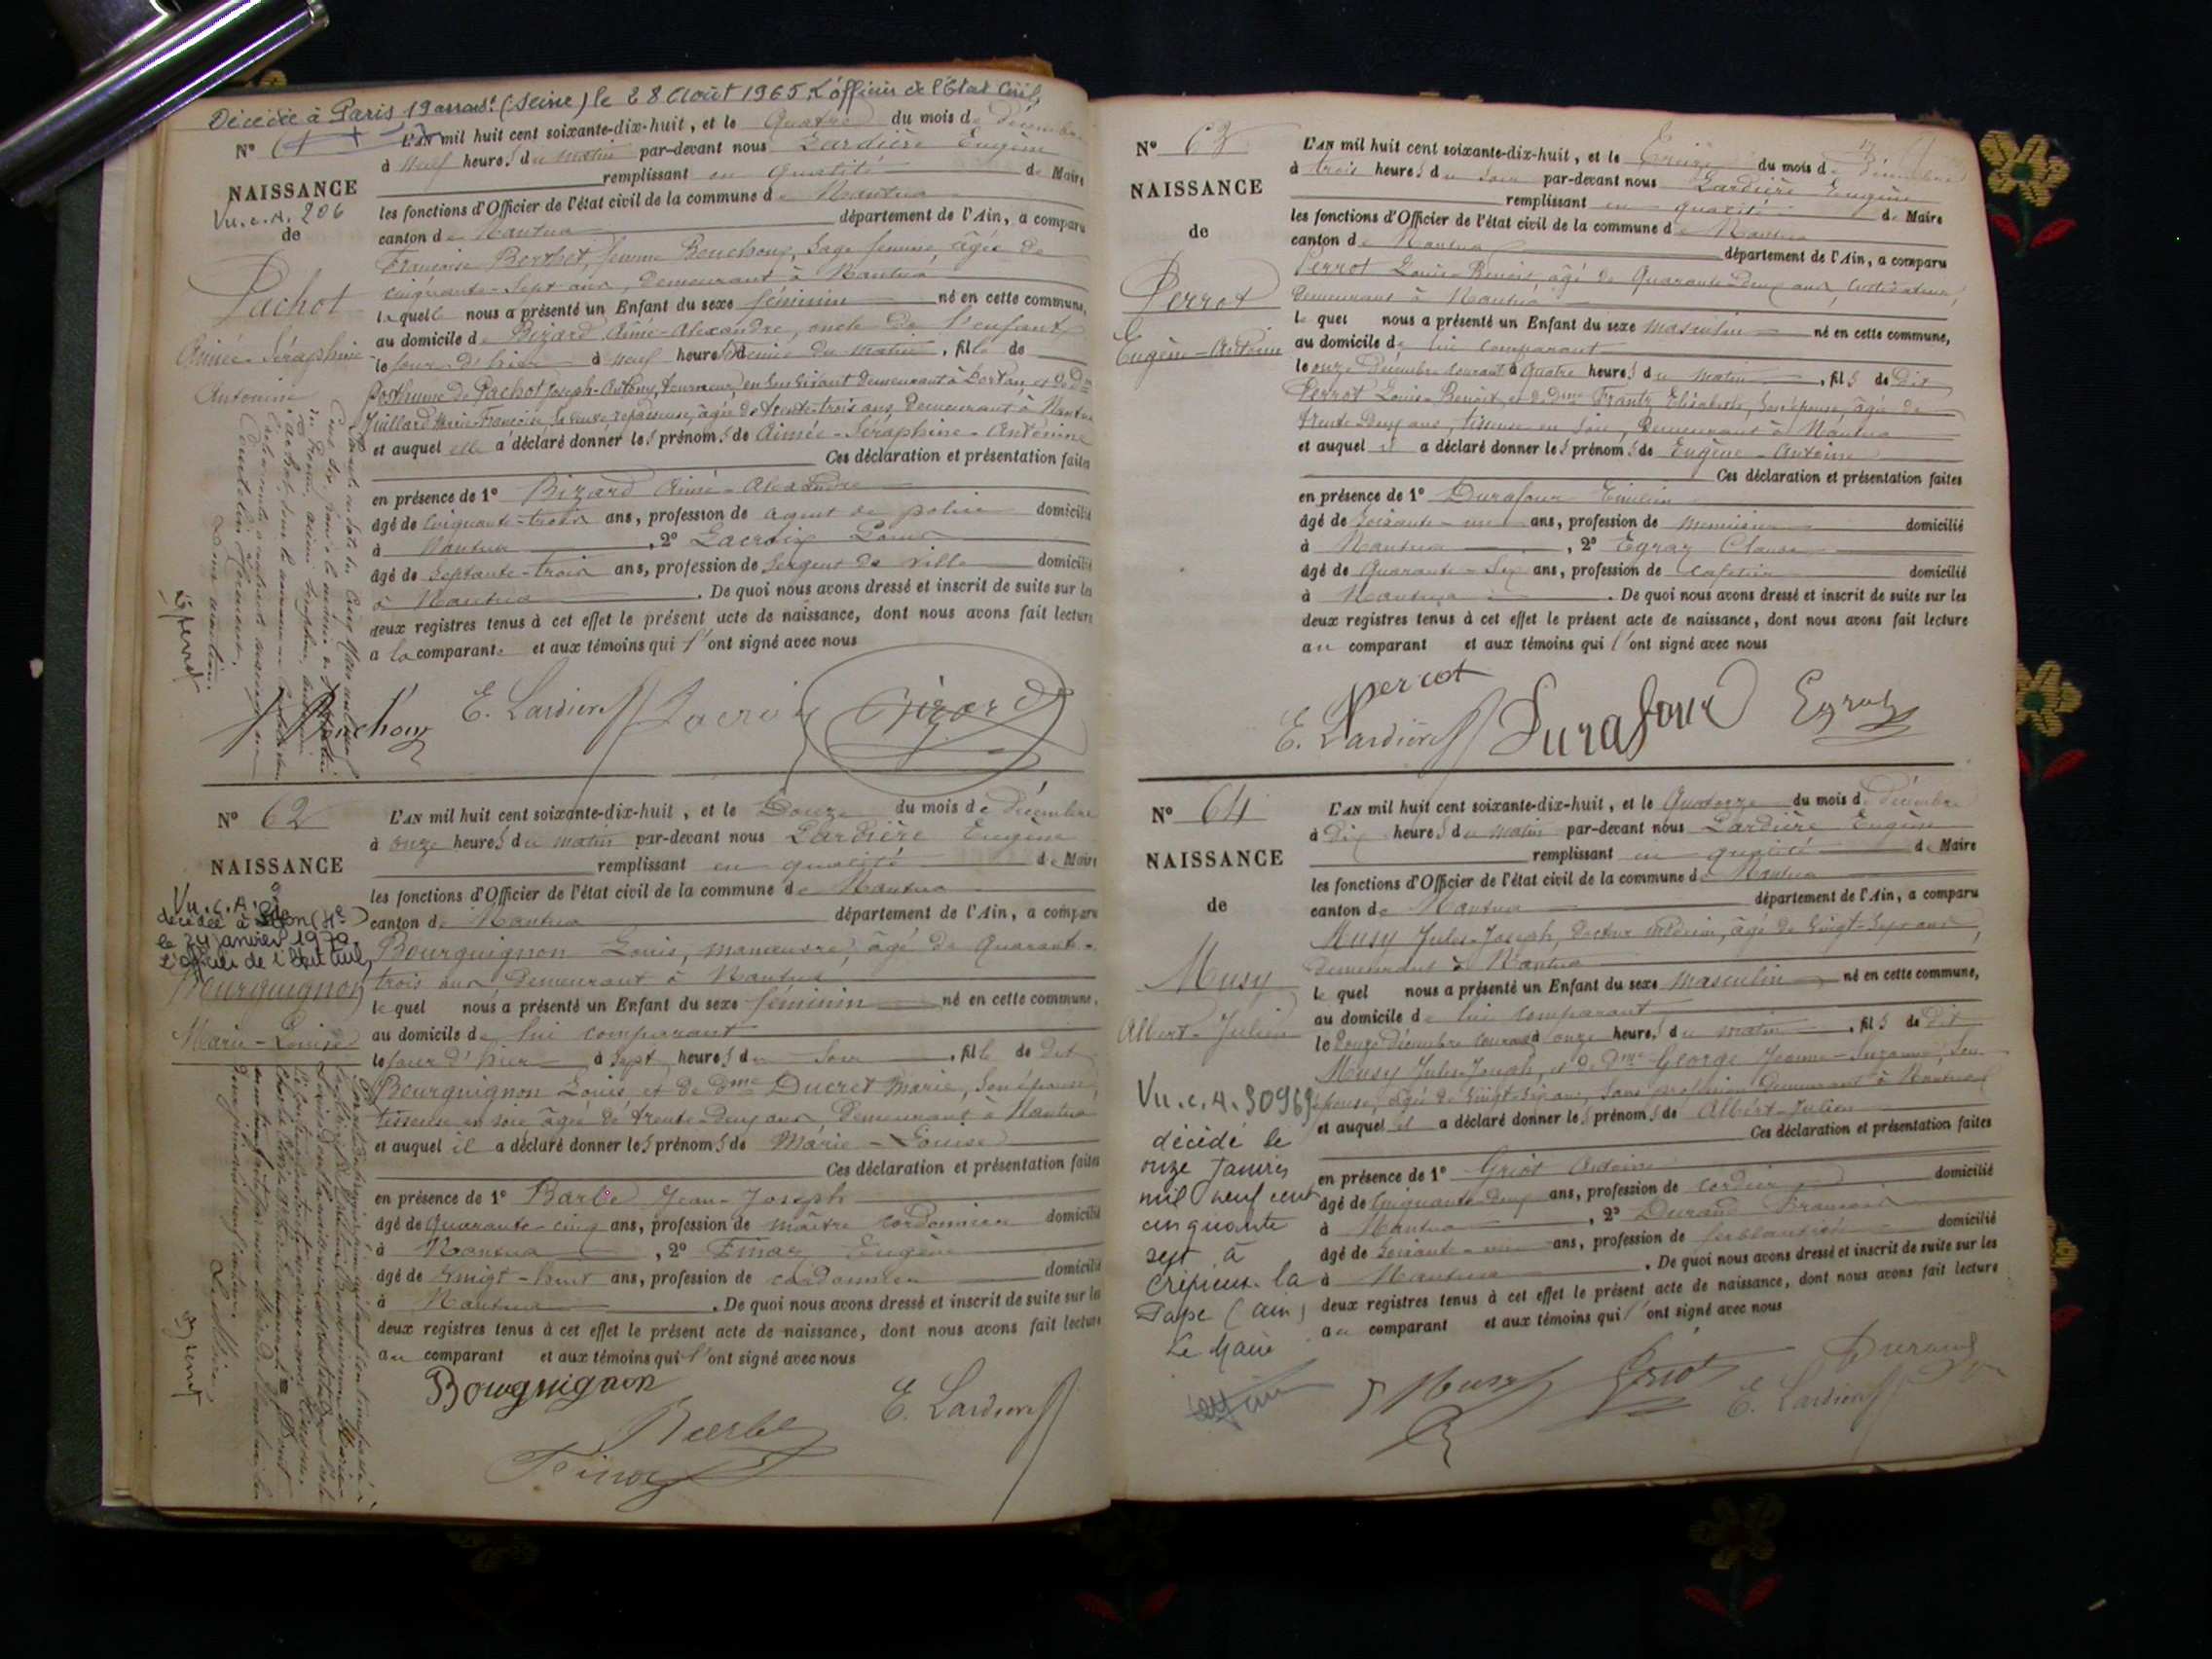 Décédée à Paris 19 arrondt (Seine) le 28 Août 1965 L'officier de l'Etat Civil
N° 61
NAISSANCE
Vu. c. A. 206
de
Pachot
Aimée-Séraphine
Antonine
L'AN mil huit cent soixante-dix-huit, et le Quatre du mois de décembre
à neuf heures du matin par-devant nous Lardière Eugène
remplissant en qualité de Maire
les fonctions d'Officier de l'état civil de la commune de Nantua
canton de Nantua département de l'Ain, a comparu
Françoise Berthet, femme Bouchoux, Sage femme, âgée de
cinquante-sept ans, demeurant à Nantua
laquelle nous a présenté un Enfant du sexe féminin né en cette commune,
au domicile de Bizard Aimé-Alexandre, oncle de l'enfant
le jour d'hier à neuf heures demie du matin, fille de
Posthume de Pachot Joseph-Antony, tourneur, en son vivant demeurant à Dortan, et de Dme
Juillard Marie-Françoise, sa veuve, repasseuse, âgée de trente-trois ans, demeurant à Nantua
et auquel elle a déclaré donner les prénoms de Aimée-Séraphine-Antonine
Ces déclaration et présentation faites
en présence de 1° Bizard Aimé-Alexandre
âgé de Cinquante-trois ans, profession de agent de police domicilié
à Nantua, 2° Lacroix Louis
âgé de Septante-trois ans, profession de Sergent de ville domicilié
à Nantua. De quoi nous avons dressé et inscrit de suite sur les
deux registres tenus à cet effet le présent acte de naissance, dont nous avons fait lecture
a la comparante et aux témoins qui l'ont signé avec nous
Bouchoux E. Lardière Lacroix Bizard
N° 62
NAISSANCE
Vu. c. A.
décédée à Lyon (4e)
le 24 janvier 1970
L'officier de l'Etat Civil,
Bourguignon
Marie-Louise
L'AN mil huit cent soixante-dix-huit, et le Douze du mois de Décembre
à onze heures du matin par-devant nous Lardière Eugène
remplissant en qualité de Maire
les fonctions d'Officier de l'état civil de la commune de Nantua
canton de Nantua département de l'Ain, a comparu
Bourguignon Louis, manœuvre, âgé de Quarante-
trois ans demeurant à Nantua
lequel nous a présenté un Enfant du sexe féminin né en cette commune,
au domicile de lui comparant
le jour d'hier à Sept heures du Soir, fille de Dit
Bourguignon Louis et de Dme Ducret Marie, son épouse,
tisseuse en soie âgée de trente-deux ans demeurant à Nantua
et auquel il a déclaré donner les prénoms de Marie-Louise
Ces déclaration et présentation faites
en présence de 1° Barbe Jean-Joseph
âgé de Quarante-cinq ans, profession de maître cordonnier domicilié
à Nantua, 2° Finaz Eugène
âgé de Vingt-huit ans, profession de cordonnier domicilié
à Nantua. De quoi nous avons dressé et inscrit de suite sur les
deux registres tenus à cet effet le présent acte de naissance, dont nous avons fait lecture
au comparant et aux témoins qui l'ont signé avec nous
Bourguignon
Barbe E. Lardière
Finaz
N° 63
NAISSANCE
de
Perrot
Eugène-Antoine
L'AN mil huit cent soixante-dix-huit, et le Treize du mois de Décembre
à trois heures du Soir par-devant nous Lardière Eugène
remplissant en qualité de Maire
les fonctions d'Officier de l'état civil de la commune de Nantua
canton de Nantua département de l'Ain, a comparu
Perrot Louis-Benoit, âgé de Quarante-deux ans, Cultivateur,
demeurant à Nantua
lequel nous a présenté un Enfant du sexe masculin né en cette commune,
au domicile de lui comparant
le onze Décembre courant à Quatre heures du matin, fils de Dit
Perrot Louis-Benoit, et de Dme Frantz Elisabeth, son épouse, âgée de
trente-deux ans, tisseuse en soie, demeurant à Nantua
et auquel il a déclaré donner les prénoms de Eugène-Antoine
Ces déclaration et présentation faites
en présence de 1° Durafour Emilien
âgé de Soixante-un ans, profession de menuisier domicilié
à Nantua, 2° Egraz Claude
âgé de Quarante-Six ans, profession de Cafetier domicilié
à Nantua. De quoi nous avons dressé et inscrit de suite sur les
deux registres tenus à cet effet le présent acte de naissance, dont nous avons fait lecture
au comparant et aux témoins qui l'ont signé avec nous
Perrot
E. Lardière Durafour Egraz
N° 64
NAISSANCE
de
Musy
Albert-Julien
Vu. c. A. 30969
décédé le
onze Janvier
mil neuf cent
cinquante
sept à
Crépieux-la
Pape (Ain)
Le Maire
L'AN mil huit cent soixante-dix-huit, et le Quatorze du mois de Décembre
à Dix heures du matin par-devant nous Lardière Eugène
remplissant en qualité de Maire
les fonctions d'Officier de l'état civil de la commune de Nantua
canton de Nantua département de l'Ain, a comparu
Musy Jules-Joseph, docteur médecin, âgé de Vingt-Sept ans,
demeurant à Nantua
lequel nous a présenté un Enfant du sexe masculin né en cette commune,
au domicile de lui comparant
le Douze décembre courant à onze heures du matin, fils de Dit
Musy Jules-Joseph, et de Dme George Jeanne-Suzanne, son
épouse, âgée de Vingt-Six ans, sans profession demeurant à Nantua
et auquel il a déclaré donner les prénoms de Albert-Julien
Ces déclaration et présentation faites
en présence de 1° Griot Antoine
âgé de Cinquante-deux ans, profession de cordier domicilié
à Nantua, 2° Durand François
âgé de Soixante-un ans, profession de ferblantier domicilié
à Nantua. De quoi nous avons dressé et inscrit de suite sur les
deux registres tenus à cet effet le présent acte de naissance, dont nous avons fait lecture
au comparant et aux témoins qui l'ont signé avec nous
J Musy Griot Durand
E. Lardière